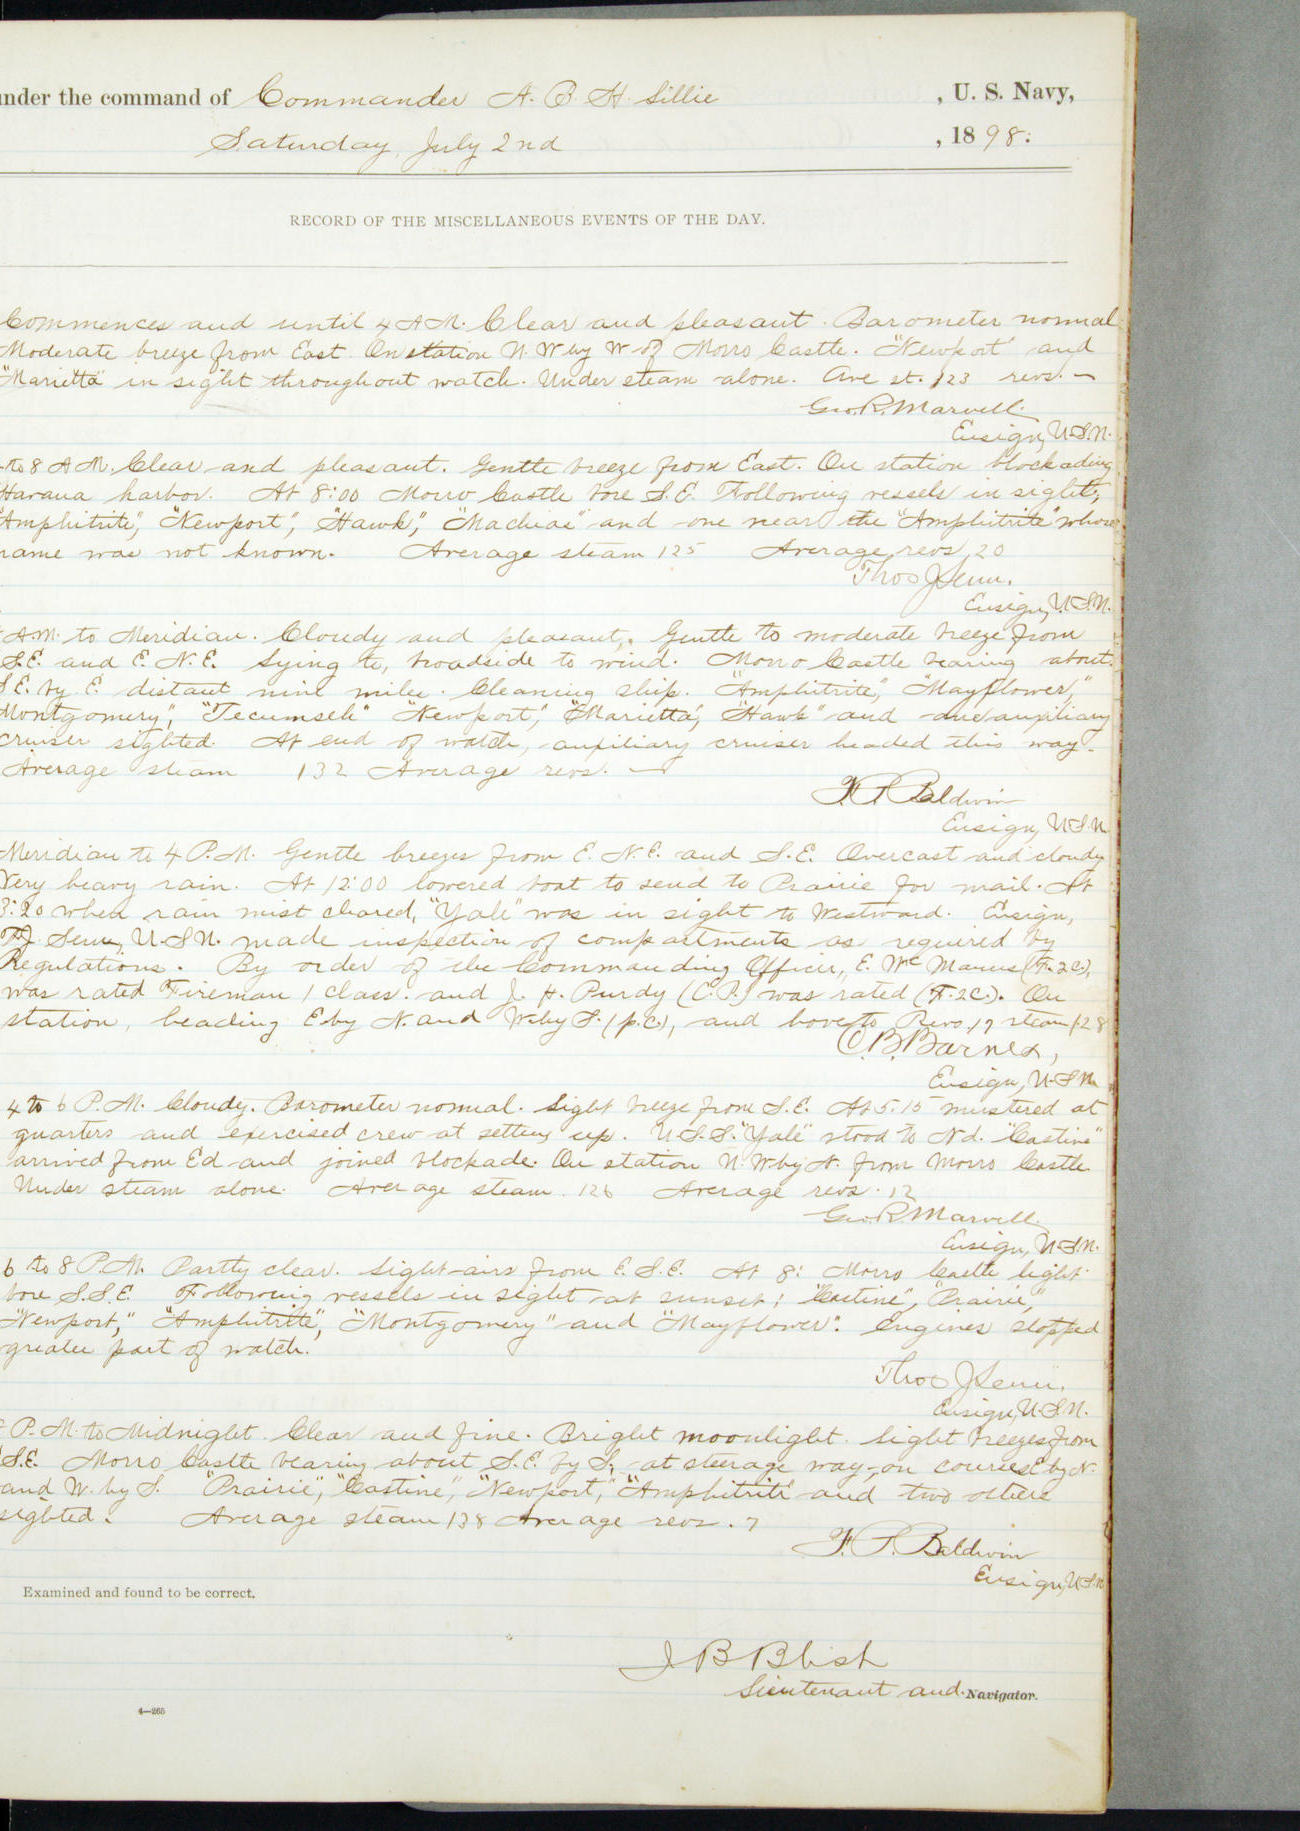 under the command of Commander A. B. H. Lillie , U. S. Navy,
Saturday, July 2nd , 1898.
RECORD OF THE MISCELLANEOUS EVENTS OF THE DAY.
Commences and until 4 A.M. Clear and pleasant. Barometer normal
Moderate breeze from East. On station N.W. by W of Morro Castle. "Newport" and
"Marietta" in sight throughout watch. Under steam alone. Ave st. 123 revs. —
Geo. R. Marvell.
Ensign, U.S.N.
to 8 A.M. Clear and pleasant. Gentle breeze from East. On station blockading
Havana harbor. At 8:00 Morro Castle bore S.E. Following vessels in sight;
"Amphitrite", "Newport", "Hawk", "Machias" and one near the "Amphitrite" whose
name was not known. Average steam 125 Average revs, 20
Thos J Senn.
Ensign, U.S.N.
A.M. to Meridian. Cloudy and pleasant. Gentle to moderate breeze from
S.E. and E.N.E. Lying to, broadside to wind. Morro Castle bearing about
S.E. by E. distant nine miles. Cleaning ship. "Amphitrite," "Mayflower,"
Montgomery", "Tecumseh" "Newport," "Marietta", "Hawk" and one auxiliary
cruiser sighted. At end of watch, auxiliary cruiser headed this way.
Average steam 132 Average revs. —
F. P. Baldwin
Ensign, U.S.N.
Meridian to 4 P.M. Gentle breezes from E.N.E. and S.E. Overcast and cloudy
Very heavy rain. At 12:00 lowered boat to send to Prairie for mail. At
3:20 when rain mist cleared, "Yale" was in sight to Westward. Ensign,
T.J. Senn, U.S.N. made inspection of compartments as required by
Regulations. By order of the Commanding Officer, E. Mc Manus (F.2C.),
was rated Fireman 1 class. and J. H. Purdy (C.P.) was rated (F.2C.). On
station, heading E by N. and W by S. (p.c.), and hove to Revs. 17 steam 128
C. B. Barnes,
Ensign, U.S.N.
4 to 6 P.M. Cloudy. Barometer normal. Light breeze from S.E. At 5.15 mustered at
quarters and exercised crew at setting up. U.S.S. "Yale" stood to Nd. "Castine"
arrived from Ed and joined blockade. On station N.W by N. from Morro Castle
Under steam alone. Average steam 126 Average revs. 12
Geo. R. Marvell
Ensign, U.S.N.
6 to 8 P.M. Partly clear. Light airs from E.S.E. At 8: Morro Castle light
bore S.S.E. Following vessels in sight at sunset: "Castine", "Prairie,"
"Newport," "Amphitrite", "Montgomery" and "Mayflower". Engines stopped
greater part of watch.
Thos J Senn.
Ensign, U.S.N.
P.M. to Midnight. Clear and fine. Bright moonlight. Light breezes from
S.E. Morro Castle bearing about S.E. by S., at steerage way, on courses E by N.
and W. by S. "Prairie", "Castine," "Newport," "Amphitrite" and two others
sighted. Average steam 138 Average revs. 7
F. P. Baldwin
Ensign, U.S.N
Examined and found to be correct.
J B Blish
Lieutenant and Navigator.
4—265